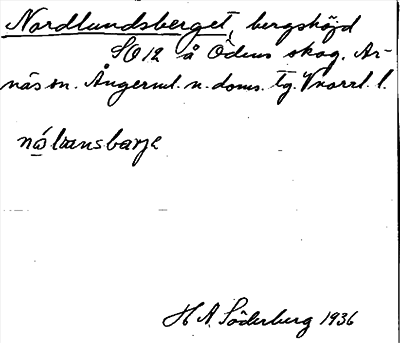 Nordlundsberget, bergshöjd
SO 12 å Ödens skog. Ar-
näs sn. Ångerml. n. doms. tg. Vnorrl. l.
nó̱lₐansbarje
H A Söderberg 1936